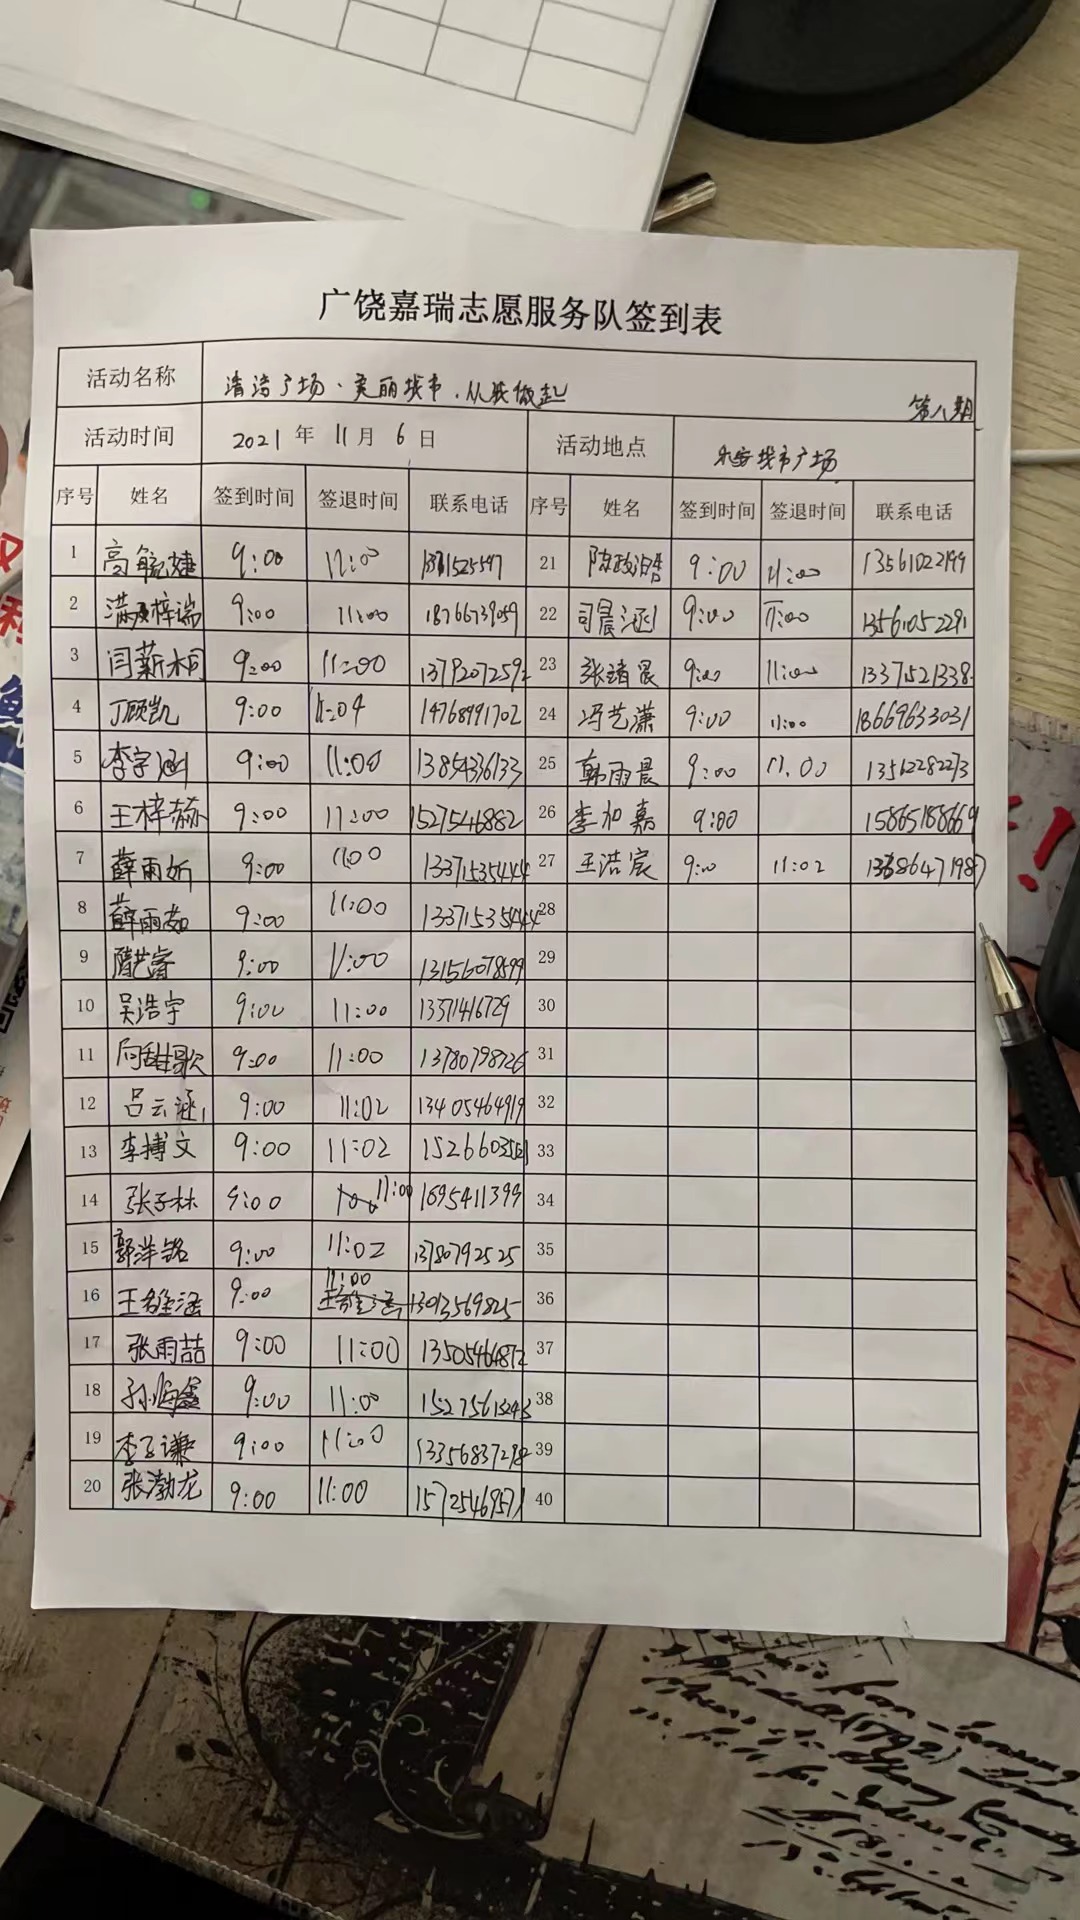 广饶嘉瑞志愿服务队签到表
活动名称 清洁广场、美丽城市,从我做起 第八期
活动时间 2021年11月6日 活动地点 乐安城市广场
序号 姓名 签到时间 签退时间 联系电话 序号 姓名 签到时间 签退时间 联系电话
1 高毓婕 9:00 11:00 21 9:00 11:00 13561022199
2 9:00 11:00 18766739059 22 司晨涵 9:00 11:00 13561052291
3 闫薪桐 9:00 11:00 13792072592 23 张靖晨 9:00 11:00 13371521338
4 丁硕凯 9:00 11:04 14768991702 24 冯艺潇 9:00 11:00 18669633031
5 李宇涵 9:00 11:00 13854336133 25 韩雨晨 9:00 11:00 13562282273
6 王梓赫 9:00 11:00 1527546882 26 李和嘉 9:00 15865188669
7 薛雨妡 9:00 11:00 13371535444 27 王浩宸 9:00 11:02
8 薛雨茹 9:00 11:00 13371535444 28
9 隋艺睿 9:00 11:00 13156078599 29
10 吴浩宇 9:00 11:00 13371416729 30
11 向甜歌 9:00 11:00 13780798726 31
12 吕云涵 9:00 11:02 13405464919 32
13 李搏文 9:00 11:02 33
14 张子林 9:00 11:00 1695411399 34
15 郭洋铭 9:00 11:02 13780792525 35
16 王雒涵 9:00 11:00 13013569825 36
17 张雨喆 9:00 11:00 13505464872 37
18 孙海鑫 9:00 11:00 38
19 李子谦 9:00 11:00 13356837298 39
20 张渤龙 9:00 11:00 15725469571 40